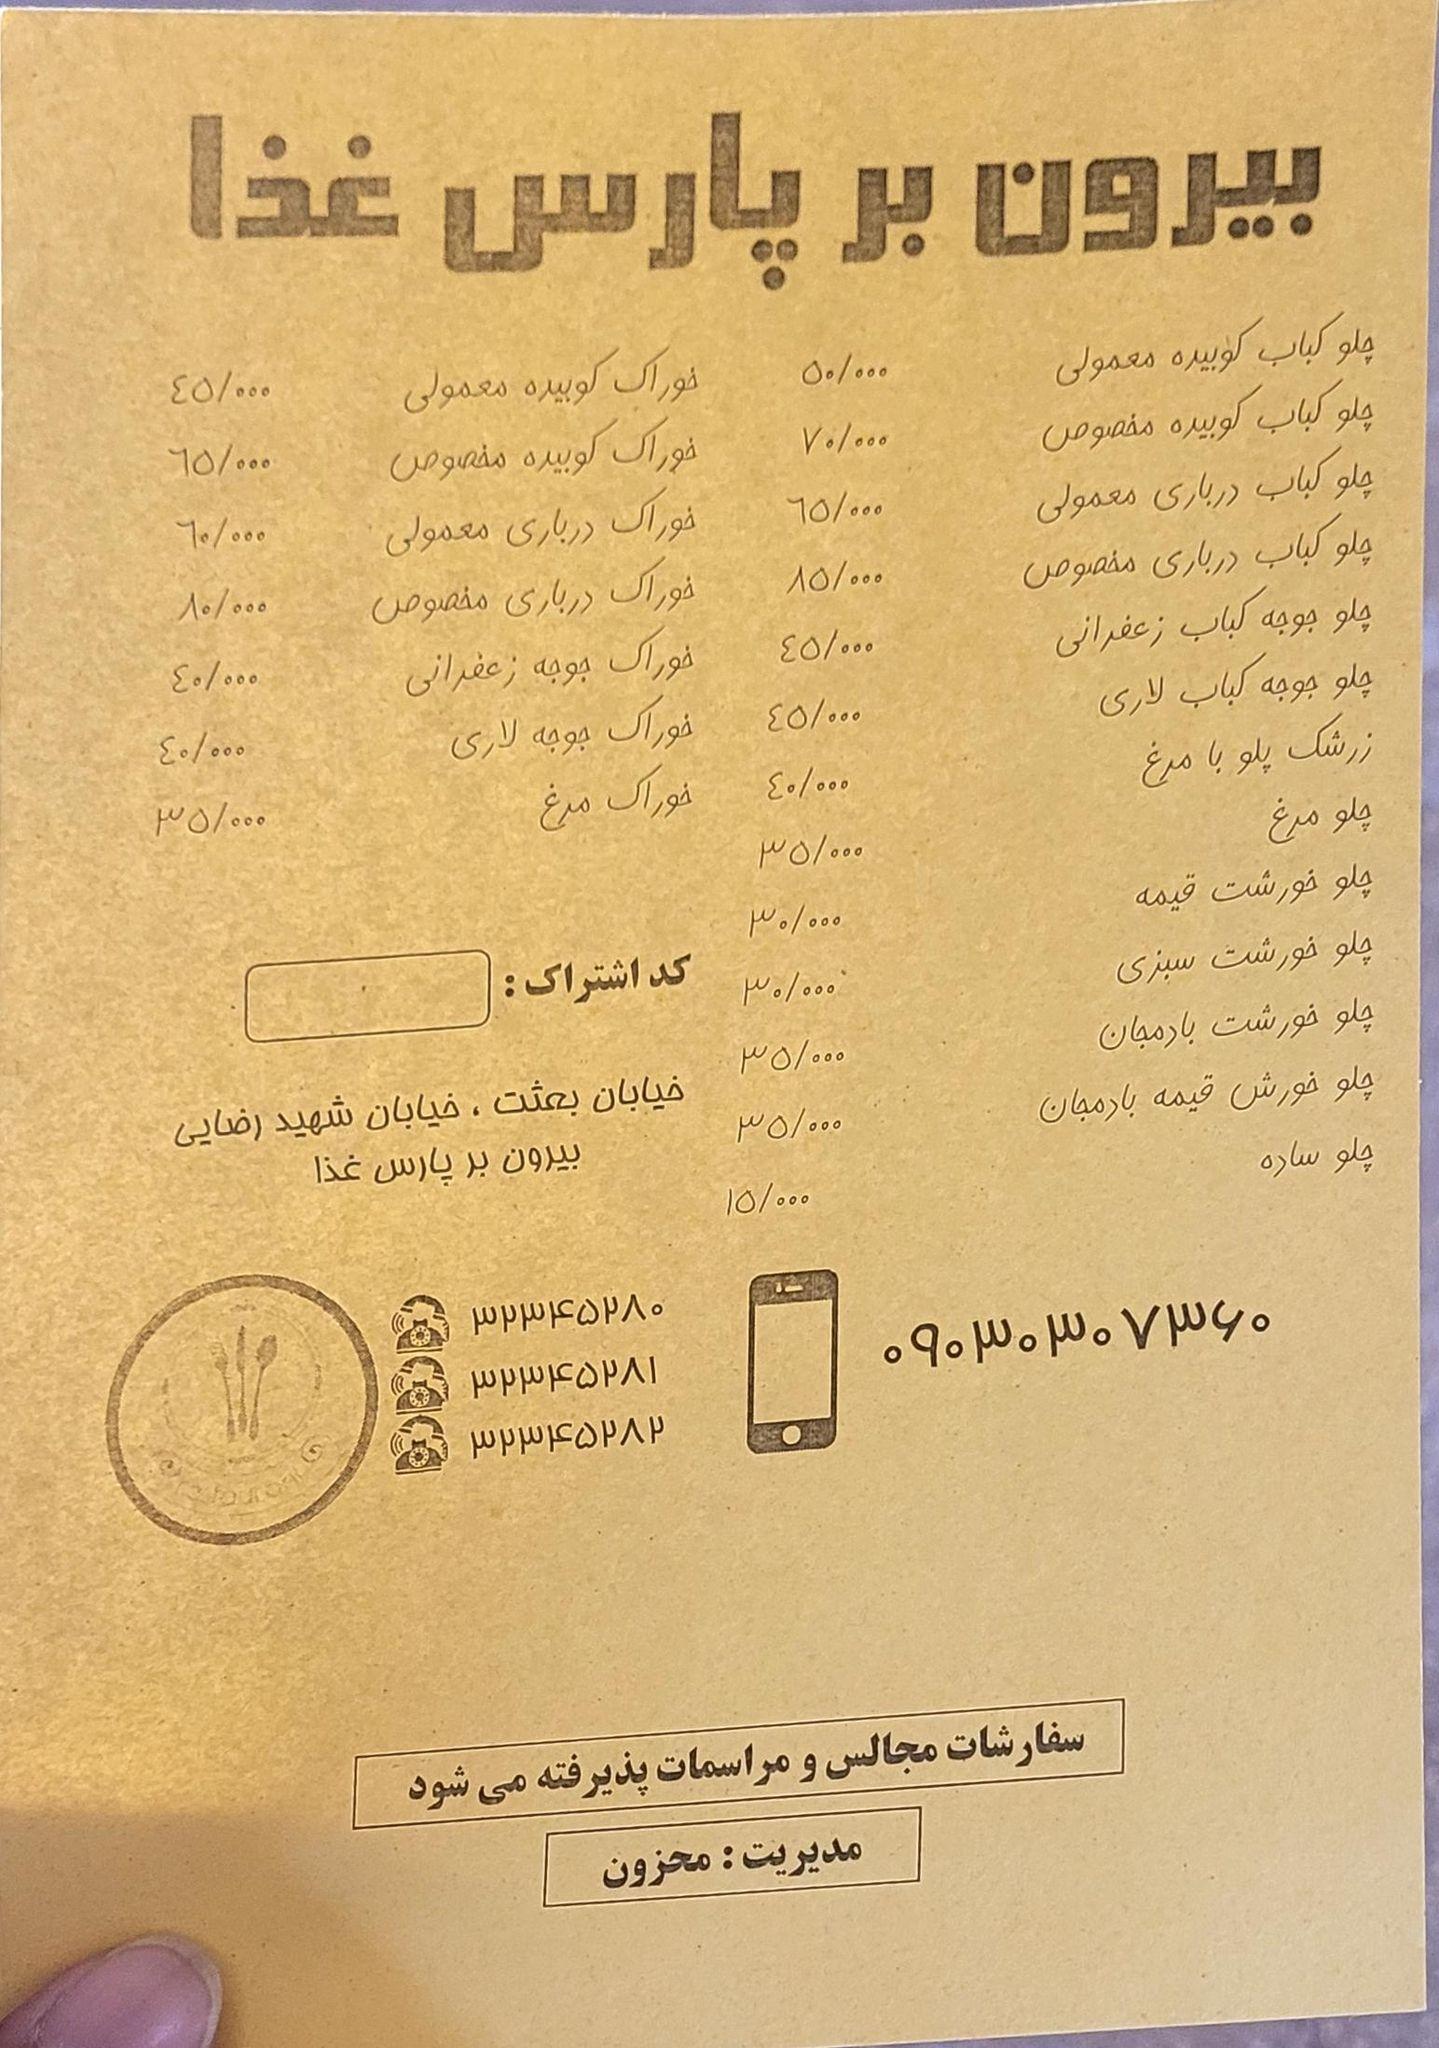 بیرون بر پارس غذا
چلو کباب کوبیده معمولی ۵۰/۰۰۰
چلو کباب کوبیده مخصوص ۷۰/۰۰۰
چلو کباب درباری معمولی ٦٥/۰۰۰
چلو کباب درباری مخصوص ۸۵/۰۰۰
چلو جوجه کباب زعفرانی ٤٥/۰۰۰
چلو جوجه کباب لاری ٤٥/۰۰۰
زرشک پلو با مرغ ٤۰/۰۰۰
چلو مرغ ۳۵/۰۰۰
چلو خورشت قیمه ۳۰/۰۰۰
چلو خورشت سبزی ۳۰/۰۰۰
چلو خورشت بادمجان ۳۵/۰۰۰
چلو خورش قیمه بادمجان ۳۵/۰۰۰
چلو ساده ۱۵/۰۰۰
خوراک کوبیده معمولی ٤٥/۰۰۰
خوراک کوبیده مخصوص ٦٥/۰۰۰
خوراک درباری معمولی ٦۰/۰۰۰
خوراک درباری مخصوص ۸۰/۰۰۰
خوراک جوجه زعفرانی ٤۰/۰۰۰
خوراک جوجه لاری ٤۰/۰۰۰
خوراک مرغ ۳۵/۰۰۰
کد اشتراک :
خیابان بعثت ، خیابان شهید رضایی
بیرون بر پارس غذا
۰۹۰۳۰۳۰۷۳۶۰
۳۲۳۴۵۲۸۰
۳۲۳۴۵۲۸۱
۳۲۳۴۵۲۸۲
سفارشات مجالس و مراسمات پذیرفته می شود
مدیریت : محزون